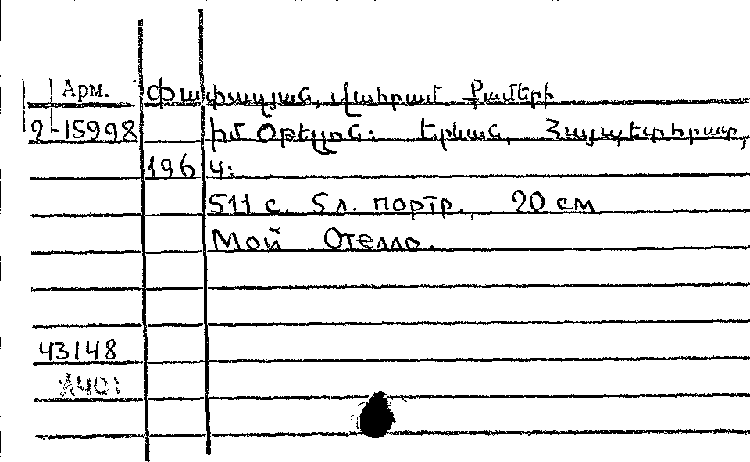 Арм. Փափազյան, Վահրամ Քամերի
2-15998 Իմ Օթելլոն: Երևան, Հայպետհրատ,
1964:
511 с. 5 л. портр., 20 см
Мой Отелло.
43148